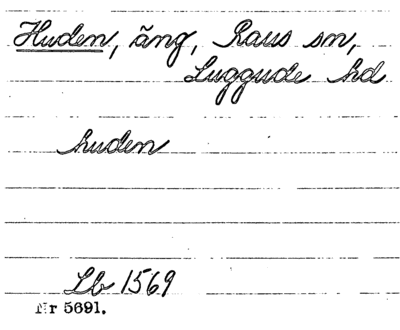 Huden, äng, Raus sn,
Luggude hd
huden
Lb 1569
Nr 5691.